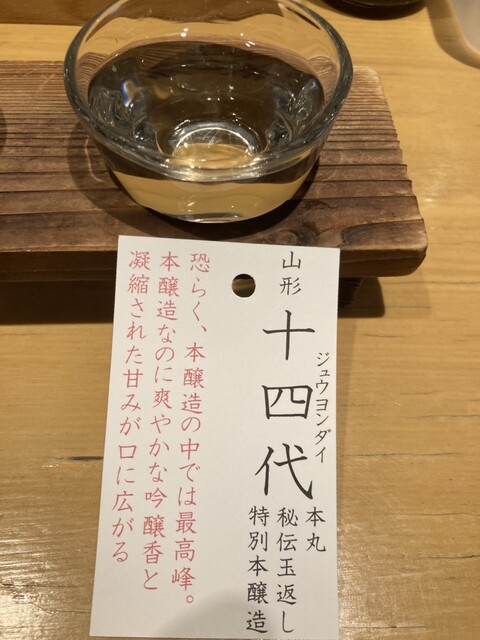 山形
十四代
ジュウヨンダイ
本丸
秘伝玉返し
特別本醸造
恐らく、本醸造の中では最高峰。
本醸造なのに爽やかな吟醸香と
凝縮された甘みが口に広がる